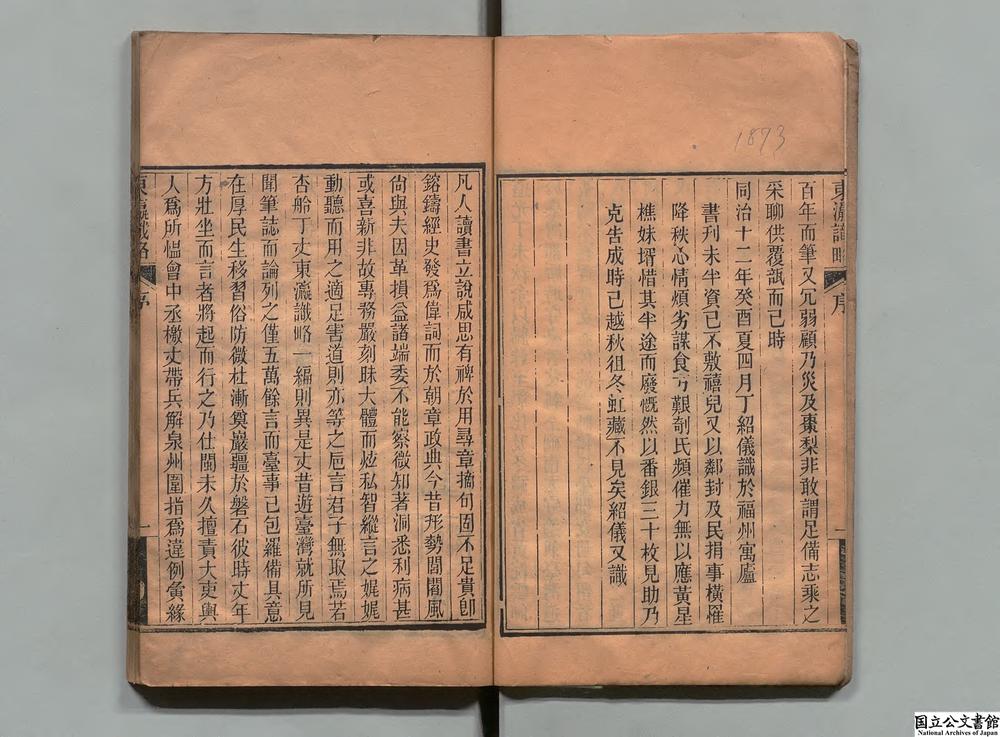 1873
東瀛識略 序 一
百年而筆又冗弱顧乃災及棗梨非敢謂足備志乘之
采聊供覆瓿而已時
同治十二年癸酉夏四月丁紹儀識於福州寓廬
書刊未半資已不敷禧兒又以鄰封及民捐事橫罹
降秩心情煩劣謀食亏艱剞氏頻催力無以應黃星
樵妹壻惜其半途而廢慨然以番銀三十枚見助乃
克告成時已越秋徂冬虹藏不見矣紹儀又識
凡人讀書立說咸思有裨於用尋章摘句固不足貴卽
鎔鑄經史發爲偉詞而於朝章政典今昔形勢閭閻風
尚與夫因革損益諸端委不能察微知著洞悉利病甚
或喜新非故專務嚴刻昧大體而炫私智縱言之娓娓
動聽而用之適足害道則亦等之卮言君子無取焉若
杏舲丁丈東瀛識略一編則異是丈昔遊臺灣就所見
聞筆誌而論列之僅五萬餘言而臺事已包羅備具意
在厚民生移習俗防微杜漸奠巖疆於磐石彼時丈年
方壯坐而言者將起而行之乃仕閩未久擅責大吏輿
人爲所慍曾中丞檄丈帶兵解泉州圍指爲違例夤緣
東瀛識略 序 一
国立公文書館
National Archives of Japan